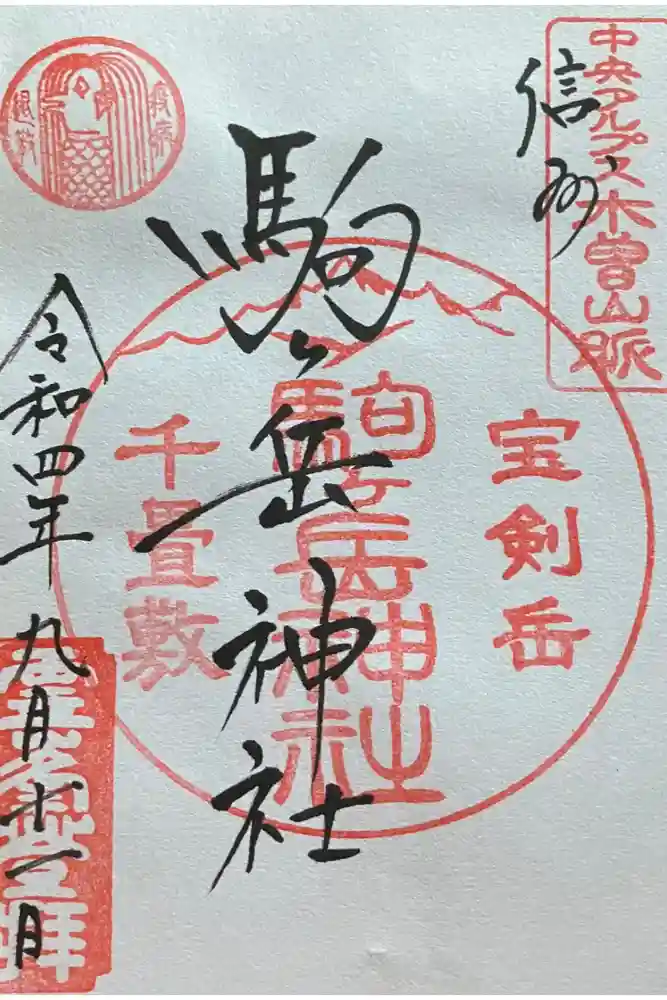 中央アルプス木曽山脈
信州
宝剣岳
駒ヶ岳神社
駒ヶ岳神社
千畳敷
令和四年九月十一日
疫病